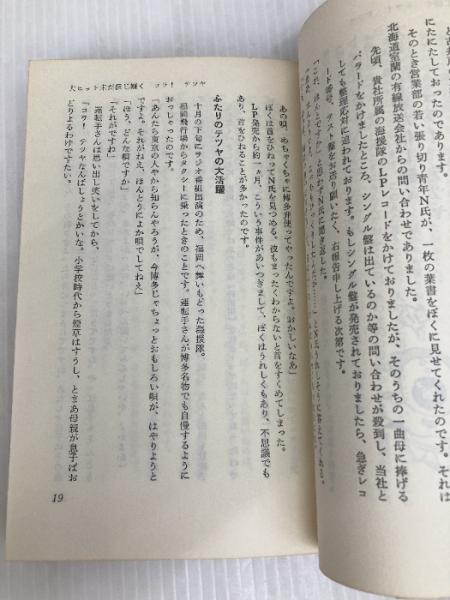 と古井
にたにたしておったのであります。
そのとき営業部の若い張り切り青年N氏が、一枚の葉書をぼくに見せてくれたのです。それは
北海道室蘭の有線放送会社からの問い合わせでありました。
先頃、貴社所属の海援隊のLPレコードをかけておりましたが、そのうちの一曲母に捧げる
バラードをかけましたところ、シングル盤は出ているのか等の問い合わせが殺到し、当社と
しても整理応対に追われております。もしシングル盤が発売されておりましたら、急ぎレコ
ード番号、テスト盤をお送り願いたく、右報告申し上げる次第です。
「これ、ほんとですか」と思わずN氏に聞き返した。
あの唄、めちゃくちゃに博多弁使ってやったんですよ。おかしいなあ」
ぼくは首をひねってN氏を見つめる。彼もまったくわからないと首をすくめてしまった。
LP発売から約一ヵ月、こういう事件があいつぎまして、ぼくはうれしくもあり、不思議でも
あり、首をひねることが多かったのです。
ふたりのテツヤの大活躍
十月の下旬にラジオ番組出演のため、福岡へ舞いもどった海援隊。
福岡飛行場からタクシーに乗ったときのことです。運転手さんが博多名物でも自慢するように
おっしゃったのです。
「あんたら東京の人やから知らんやろうが、今博多じゃちょっとおもしろい唄が、はやりようと
ですよ。それがねえ、ほんとうによか唄でしてねえ」
「ほう、どんな唄ですか」
「それがですね」
運転手さんは思い出し笑いをしてから、
「コラ!　テツヤなんばしょうとかいな。小学校時代から煙草はすうし、とまあ母親が息子ばお
どりよるわけですたい。
大ヒット未だ信じ難く　コラ!　テツヤ
19